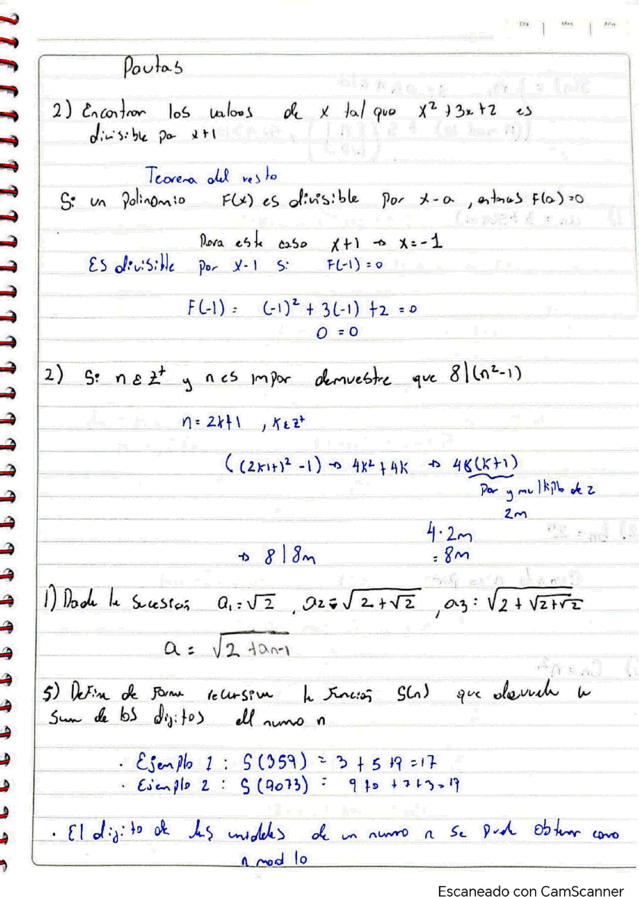 Día Mes Año
Pautas
2) Encontrar los valores de x tal que x² + 3x + 2 es
divisible por x+1
Teorema del resto
Si un Polinomio F(x) es divisible por x-a, entonces F(a)=0
Para este caso x+1 → x=-1
Es divisible por x-1 si F(-1)=0
F(-1) = (-1)² + 3(-1) + 2 = 0
0 = 0
2) Si n ε Z⁺ y n es impar demuestre que 8|(n²-1)
n = 2k+1 , k ε Z⁺
((2k+1)² - 1) → 4k² + 4k → 4k(k+1)
Par y multiplo de 2
2m
4·2m
→ 8|8m = 8m
1) Dada la sucesión a₁ = √2 , a₂ = √(2+√2) , a₃ = √(2+√(2+√2))
a = √(2+an-1)
5) Defina de forma recursiva la función S(n) que devuelve la
suma de los digitos del numero n
· Ejemplo 1 : S(359) = 3 + 5 + 9 = 17
· Ejemplo 2 : S(9073) = 9+0+7+3=17
· El digito de las unidades de un numero n se puede obtener como
n mod 10
Escaneado con CamScanner